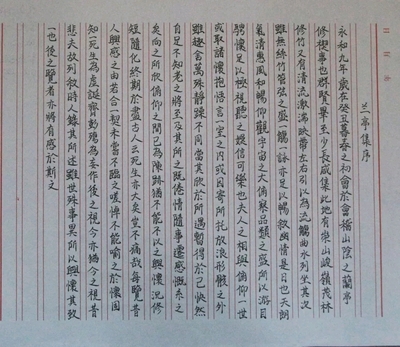 兰亭集序
永和九年歲在癸丑暮春之初會於會稽山陰之蘭亭
修禊事也群賢畢至少長咸集此地有崇山峻嶺茂林
修竹又有清流激湍映帶左右引以為流觴曲水列坐其次
雖無絲竹管弦之盛一觴一詠亦足以暢敘幽情是日也天朗
氣清惠風和暢仰觀宇宙之大俯察品類之盛所以游目
騁懷足以極視聽之娛信可樂也夫人之相與俯仰一世
或取諸懷抱悟言一室之內或因寄所托放浪形骸之外
雖趣舍萬殊靜躁不同當其欣於所遇暫得於己快然
自足不知老之將至及其所之既倦情隨事遷感慨系之
矣向之所欣俯仰之間已為陳跡猶不能不以之興懷況修
短隨化終期於盡古人云死生亦大矣豈不痛哉每覽昔
人興感之由若合一契未嘗不臨文嗟悼不能喻之於懷固
知一死生為虛誕齊彭殤為妄作後之視今亦猶今之視昔
悲夫故列敘時人錄其所述雖世殊事異所以興懷其致
一也後之覽者亦將有感於斯文